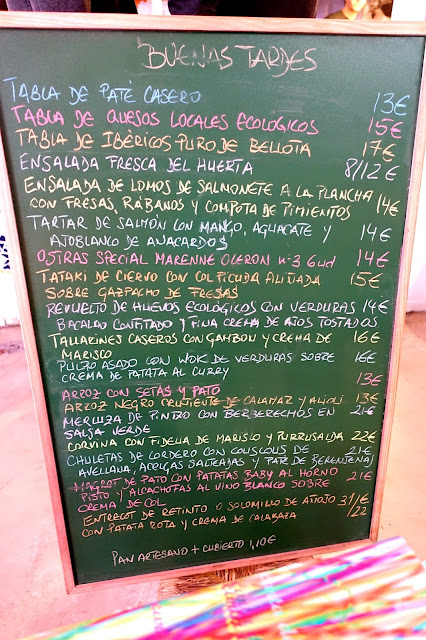 BUENAS TARDES
TABLA DE PATÉ CASERO 13€
TABLA DE QUESOS LOCALES ECOLÓGICOS 15€
TABLA DE IBÉRICOS PURO DE BELLOTA 17€
ENSALADA FRESCA DEL HUERTA 8/12€
ENSALADA DE LOMOS DE SALMONETE A LA PLANCHA
CON FRESAS, RÁBANOS Y COMPOTA DE PIMIENTOS 14€
TARTAR DE SALMÓN CON MANGO, AGUACATE Y 14€
AJOBLANCO DE ANACARDOS
OSTRAS SPECIAL MARENNE OLERON Nº3 6ud 14€
TATAKI DE CIERVO CON COL PICUDA ALIÑADA 15€
SOBRE GAZPACHO DE FRESAS
REVUELTO DE HUEVOS ECOLÓGICOS CON VERDURAS 14€
BACALAO CONFITADO Y FINA CREMA DE AJOS TOSTADOS
TALLARINES CASEROS CON GAMBON Y CREMA DE 16€
MARISCO
PULPO ASADO CON WOK DE VERDURAS SOBRE 16€
CREMA DE PATATA AL CURRY
ARROZ CON SETAS Y PATO 13€
ARROZ NEGRO CRUJIENTE DE CALAMAR Y ALIOLI 13€
MERLUZA DE PINTXO CON BERBERECHOS EN 21€
SALSA VERDE
CORVINA CON FIDEUA DE MARISCO Y PURRUSALDA 22€
CHULETAS DE CORDERO CON COUSCOUS DE 21€
AVELLANA, ACELGAS SALTEADAS Y PATÉ DE BERENJENA
MAGRET DE PATO CON PATATAS BABY AL HORNO 21€
PISTO Y ALCACHOFAS AL VINO BLANCO SOBRE
CREMA DE COL
ENTRECOT DE RETINTO O SOLOMILLO DE AÑOJO 31/€
CON PATATA ROTA Y CREMA DE CALABAZA /22
PAN ARTESANO + CUBIERTO 1,10€